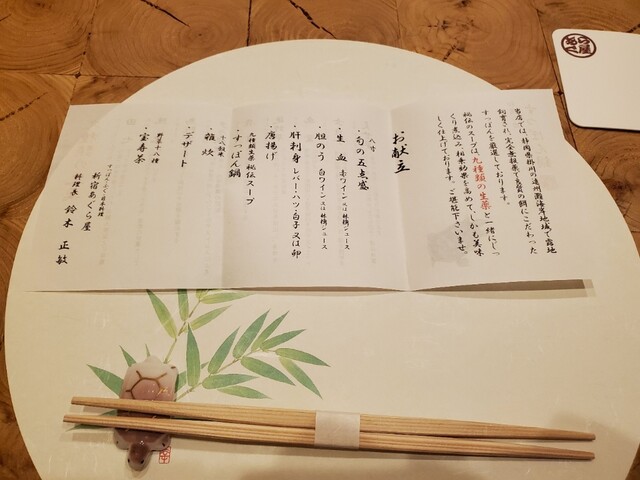 当店では、静岡県掛川の遠州灘海岸地域で露地
飼育され、完全無投薬で良質の餌にこだわった
すっぽんを厳選しております。
秘伝のスープは、九種類の生薬と一緒にじっ
くり煮込み、相乗効果を高めて、しかも美味
しく仕上げております。ご堪能下さいませ。
お献立
八寸
・旬の五点盛
・生血 赤ワイン又は林檎ジュース
・胆のう 白ワイン又は林檎ジュース
・肝刺身 レバー・ハツ・白子又は卵
・唐揚げ
九種類生薬秘伝スープ
・すっぽん鍋
・雑炊
・デザート
野草十八種
・宝寿茶
すっぽん・ふぐ・日本料理
新宿あぐら屋
料理長 鈴木 正敏
あぐら屋